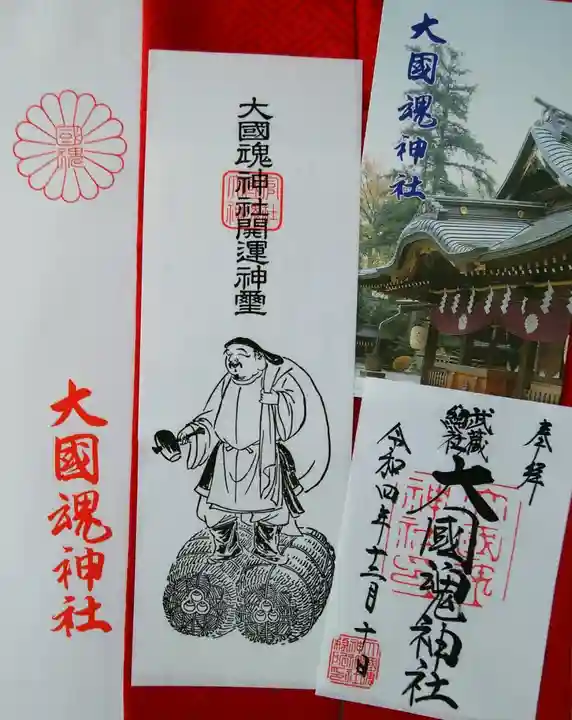 國魂
大國魂神社
大國魂神社開運神璽
大國魂神社
奉拝
武蔵
總社
大國魂神社
令和四年十二月十日